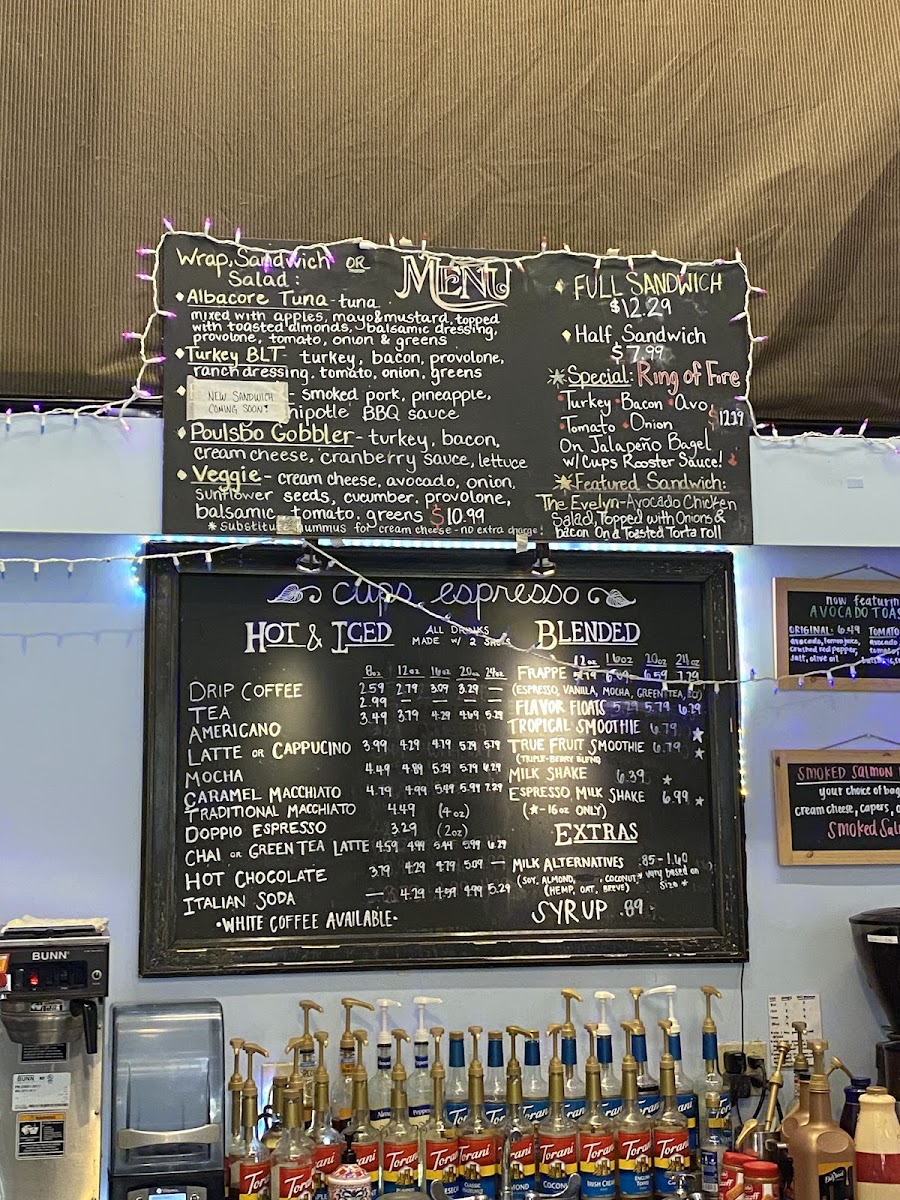 Wrap, Sandwich OR
Salad:
MENU
Albacore Tuna - tuna
mixed with apples, mayo & mustard, topped
with toasted almonds, balsamic dressing,
provolone, tomato, onion & greens
Turkey BLT - turkey, bacon, provolone,
ranch dressing, tomato, onion, greens
NEW SANDWICH
COMING SOON!
- smoked pork, pineapple,
hipotle BBQ sauce
Poulsbo Gobbler - turkey, bacon,
cream cheese, cranberry sauce, lettuce
Veggie - cream cheese, avocado, onion,
sunflower seeds, cucumber, provolone,
balsamic, tomato, greens $10.99
* substitute hummus for cream cheese - no extra charge!
FULL SANDWICH
$12.29
Half Sandwich
$7.99
Special: Ring of Fire
Turkey Bacon Avo
Tomato Onion $12.29
On Jalapeño Bagel
w/ Cups Rooster Sauce!
Featured Sandwich:
The Evelyn - Avocado Chicken
Salad, Topped with Onions &
bacon On a Toasted Torta roll
cups espresso
HOT & ICED
ALL DRINKS
MADE W/ 2 SHOTS
8oz 12oz 16oz 20oz 24oz
DRIP COFFEE 2.59 2.79 3.09 3.29 —
TEA 2.99 — — — —
AMERICANO 3.49 3.79 4.29 4.69 5.29
LATTE OR CAPPUCINO 3.99 4.29 4.79 5.29 5.79
MOCHA 4.49 4.89 5.29 5.79 6.29
CARAMEL MACCHIATO 4.79 4.99 5.49 5.99 7.29
TRADITIONAL MACCHIATO 4.49 (4oz)
DOPPIO ESPRESSO 3.29 (2oz)
CHAI OR GREEN TEA LATTE 4.59 4.99 5.49 5.99 6.29
HOT CHOCOLATE 3.79 4.29 4.79 5.09 —
ITALIAN SODA — 4.29 4.59 4.99 5.29
•WHITE COFFEE AVAILABLE•
BLENDED
12oz 16oz 20oz 24oz
FRAPPE 6.59 7.29
(ESPRESSO, VANILLA, MOCHA, GREEN TEA,
FLAVOR FLOATS 5.29 5.79 6.29
TROPICAL SMOOTHIE 6.79 ★
TRUE FRUIT SMOOTHIE 6.79 ★
(TRIPLE-BERRY BLEND)
MILK SHAKE 6.39 ★
ESPRESSO MILK SHAKE 6.99 ★
(★ - 16oz ONLY)
EXTRAS
MILK ALTERNATIVES .85 - 1.60
(SOY, ALMOND, COCONUT, * vary based on
(HEMP, OAT, BREVE) Size *
SYRUP .89
now featurin
AVOCADO TOAS
ORIGINAL: 6.49 TOMATO
avocado, lemon juice, avocado
crushed red pepper, tomato
salt, olive oil
SMOKED SALMON
your choice of bag
cream cheese, capers,
Smoked Sal
BUNN
BUNN
Torani
Torani
Torani
Torani
Torani
Torani
Torani
Torani
Torani
COCONU
IRISH CREAM
ENGLISH TOFFEE